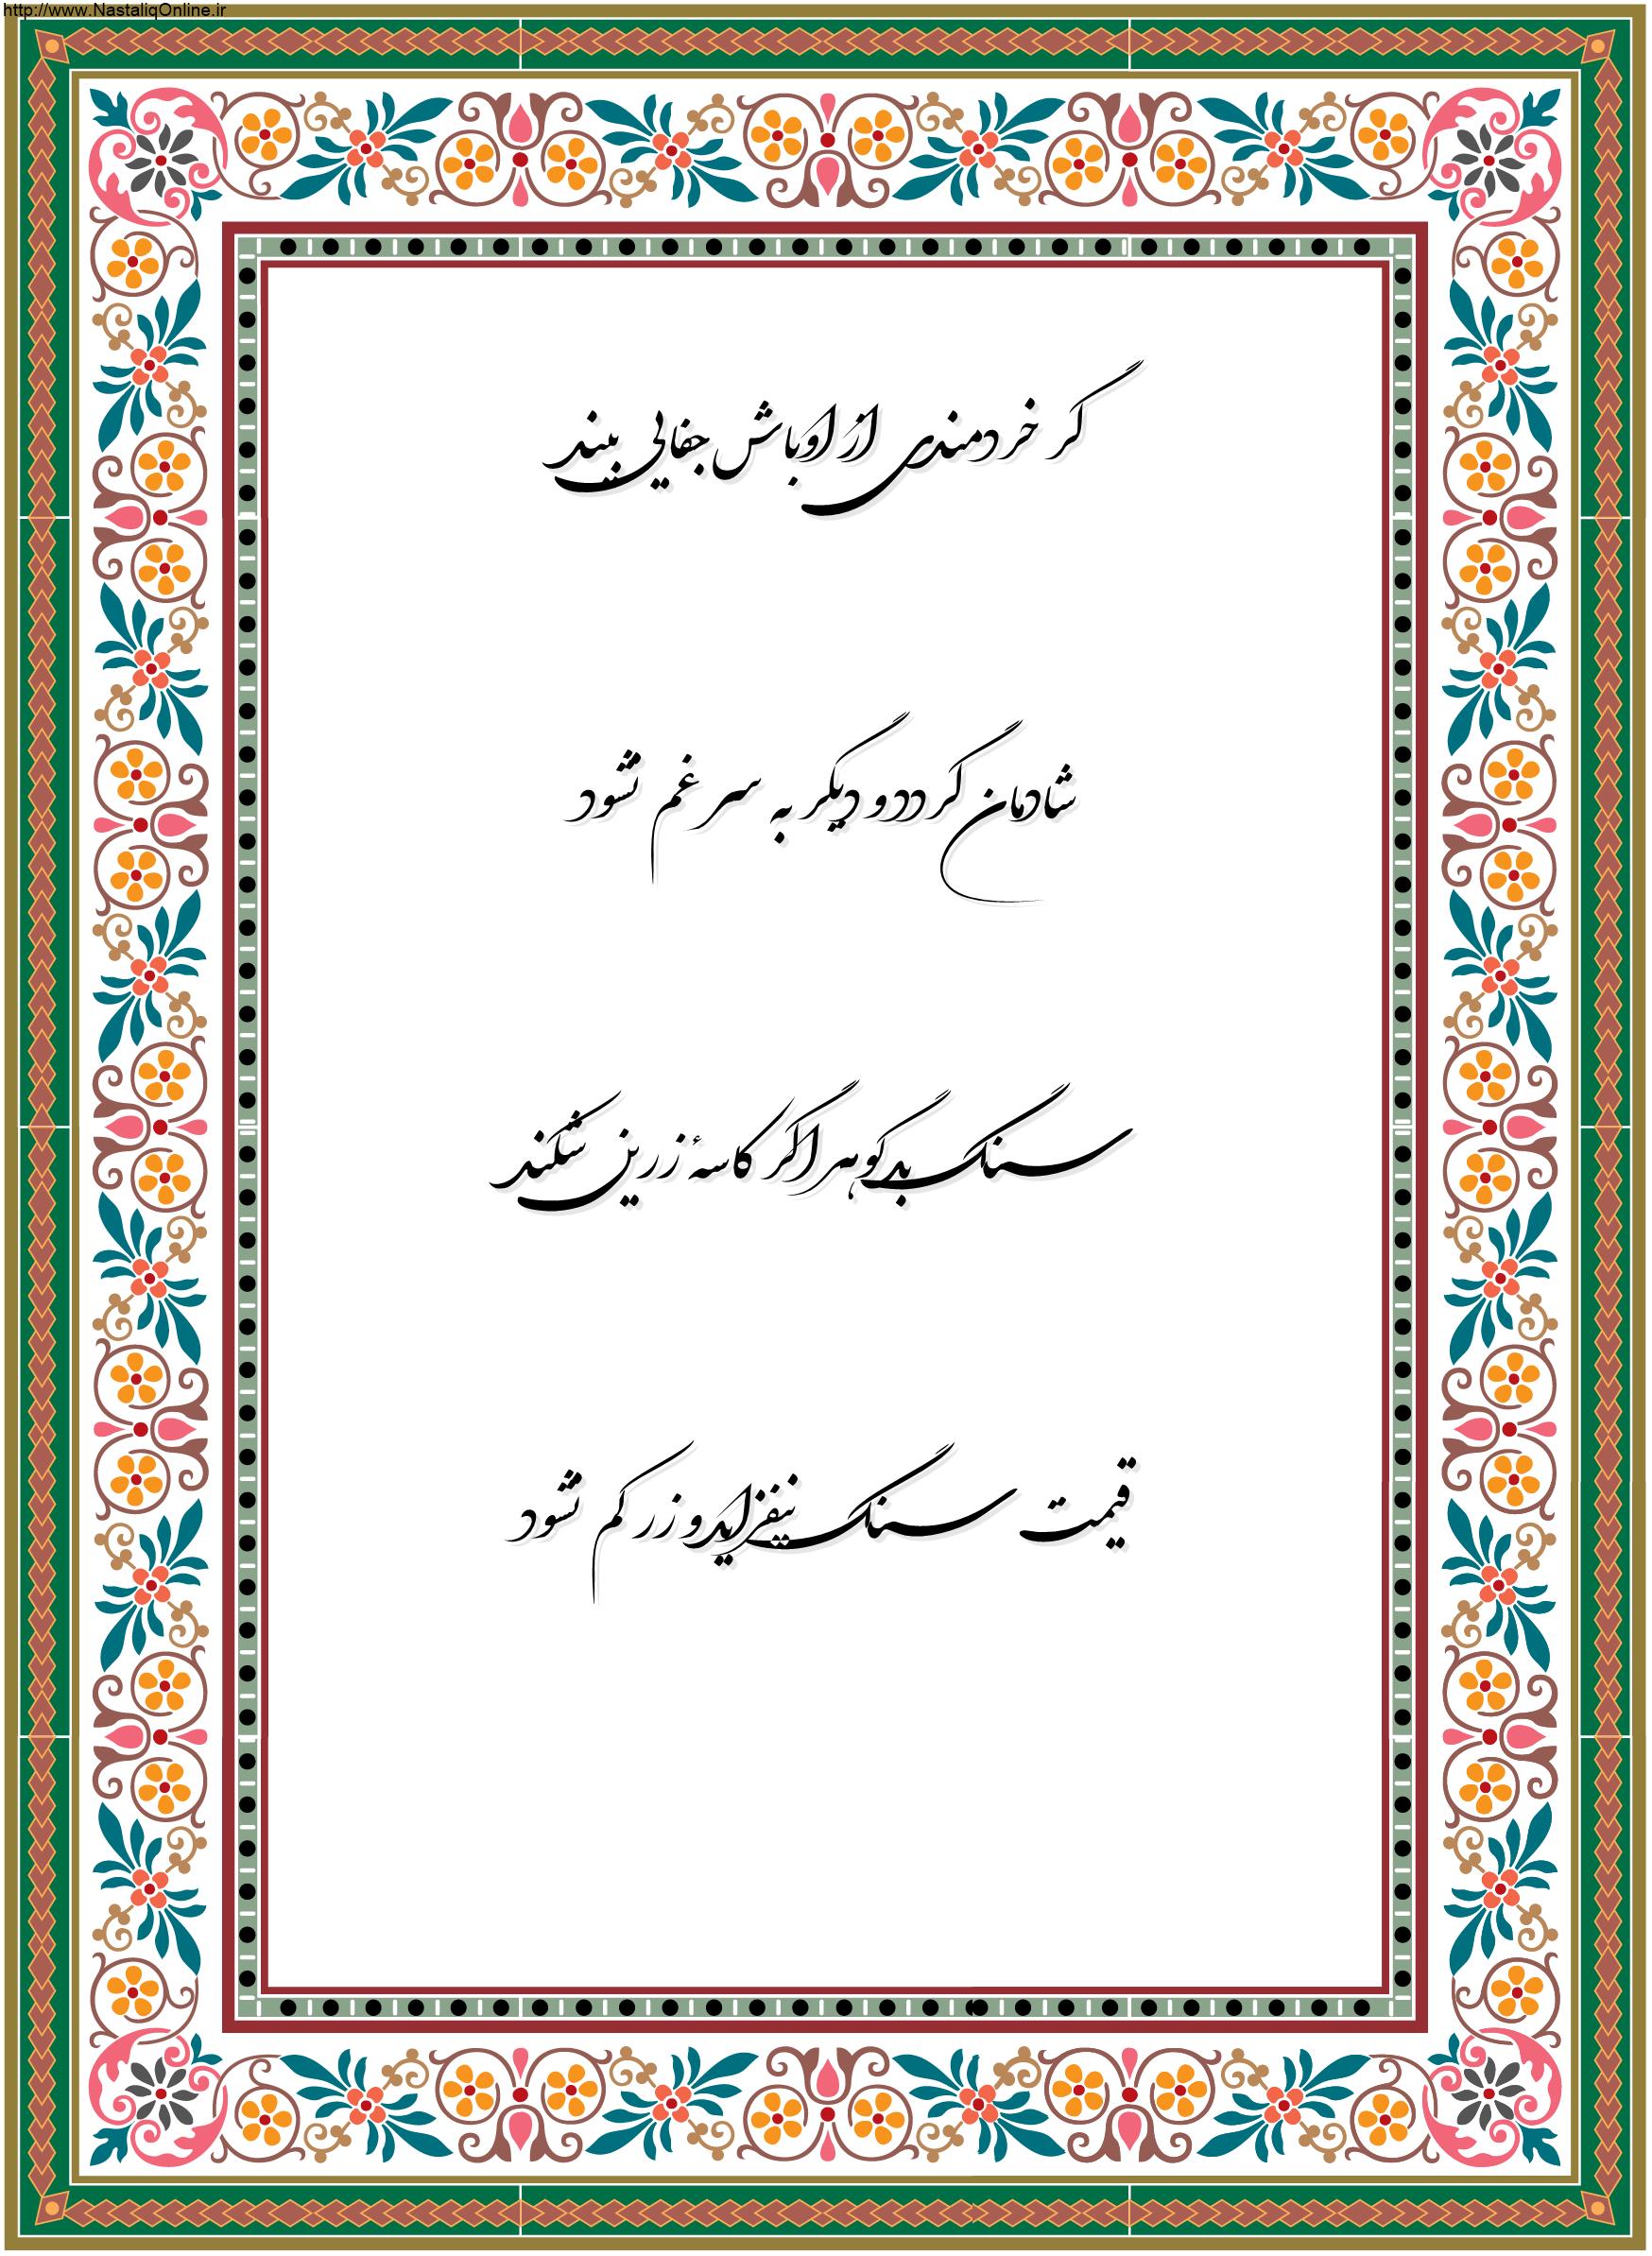 http://www.NastaliqOnline.ir
گر خردمندی از اوباش جفایی بیند
شادمان گردد و دیگر به سر غم نشود
سنگ بدگوهر اگر کاسهٔ زرین شکند
قیمت سنگ نیفزاید و زر کم نشود